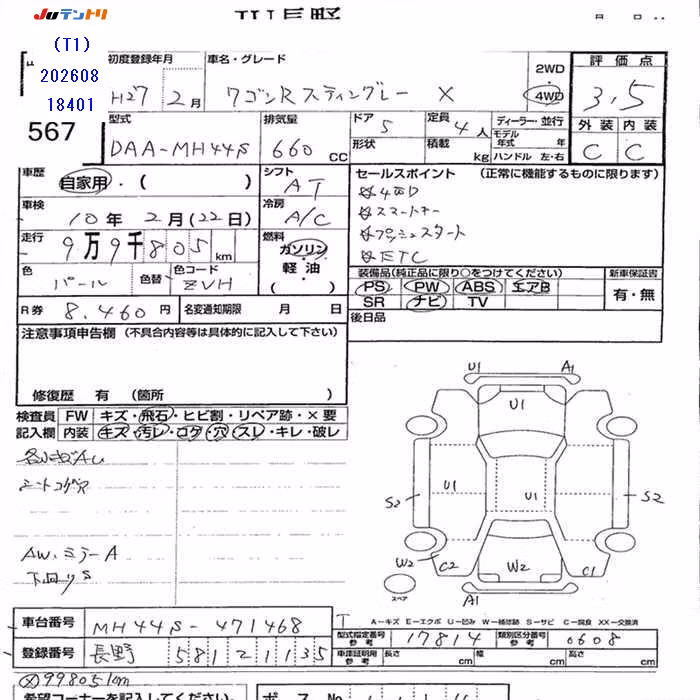 Juテントリ JU長野 月 日
(T1)
202608
18401
567
初度登録年月 車名・グレード 2WD 4WD 評価点
H27 2月 ワゴンR スティングレー X 3.5
型式 排気量 ドア 5 定員 4人 ディーラー・並行 外装 内装
DAA-MH44S 660 CC 形状 積載 kg モデル年式 年 ハンドル 左・右 C C
車歴 自家用・( ) シフト AT セールスポイント (正常に機能するものに限ります)
車検 10年 2月(22日) 冷房 A/C ☆4WD
☆スマートキー
走行 9万9千805km 燃料 ガソリン 軽油 ( ) ☆プッシュスタート
☆ETC
色 パール 色替 色コード ZVH 装備品(純正品に限り○をつけてください) 新車保証書
PS PW ABS エアB 有・無
SR ナビ TV
R券 8,460円 名変通知期限 月 日 後日品
注意事項申告欄 (不具合内容等は具体的に記入して下さい)
修復歴 有 (箇所 )
検査員 FW キズ・飛石・ヒビ割・リペア跡・×要
記入欄 内装 キズ・汚レ・コゲ・穴・スレ・キレ・破レ
シートコゲ穴
AW、ミラーA
下回りS
U1 A1
U1
U1 U1
S2 S2
W2 C2 W2 C1
スペア A1
車台番号 MH44S-471468
A-キズ E-エクボ U-凹み W-補修跡 S-サビ C-腐食 XX-交換済
型式指定番号 参考 17814 類別区分番号 参考 0608
登録番号 長野 581 2 1135 車庫証明用 参考 長さ cm 幅 cm 高さ cm
99805km
希望コーナーを記入してください ボス No